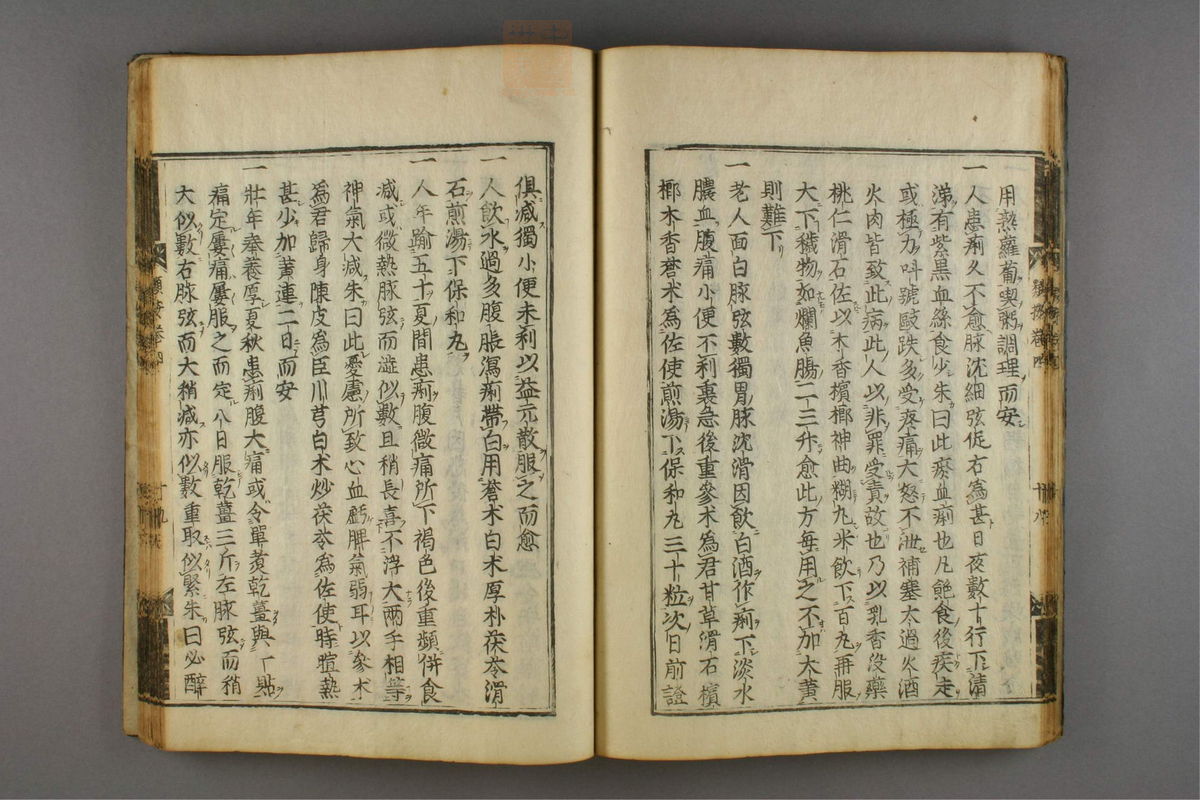 用熟蘿蔔喫粥調理而安
一人患痢久不愈脉沈細弦促右爲甚日夜數十行下清
涕有紫黒血絲食少朱曰此瘀血痢也凡飽食後疾走
或極力呌號敺跌多受疼痛大怒不泄補塞太過火酒
火肉皆致此病此人以非罪受責故也乃以乳香没藥
桃仁滑石佐以木香檳榔神曲糊丸米飲下百丸再服
大下穢物如爛魚腸二三升愈此方毎用之不加大黄
則難下
一老人面白脉弦數獨胃脉沈滑因飲白酒作痢下淡水
膿血腹痛小便不利裏急後重參术爲君甘草滑石檳
榔木香蒼术爲佐使煎湯下保和丸三十粒次日前證
俱減獨小便未利以益元散服之而愈
一人飲水過多腹脹瀉痢帶白用蒼术白术厚朴茯苓滑
石煎湯下保和丸
一人年踰五十夏間患痢腹微痛所下褐色後重頻併食
減或微熱脉弦而澁似數且稍長喜不浮大兩手相等
神氣大減朱曰此憂慮所致心血虧脾氣弱耳以參术
爲君歸身陳皮爲臣川芎白术炒茯苓爲佐使時暄熱
甚少加黄連二日而安
一壯年奉養厚夏秋患痢腹大痛或令單煑乾薑與一貼
痛定屢痛屢服之而定八日服乾薑三斤左脉弦而稍
大似數右脉弦而大稍減亦似數重取似緊朱曰必醉